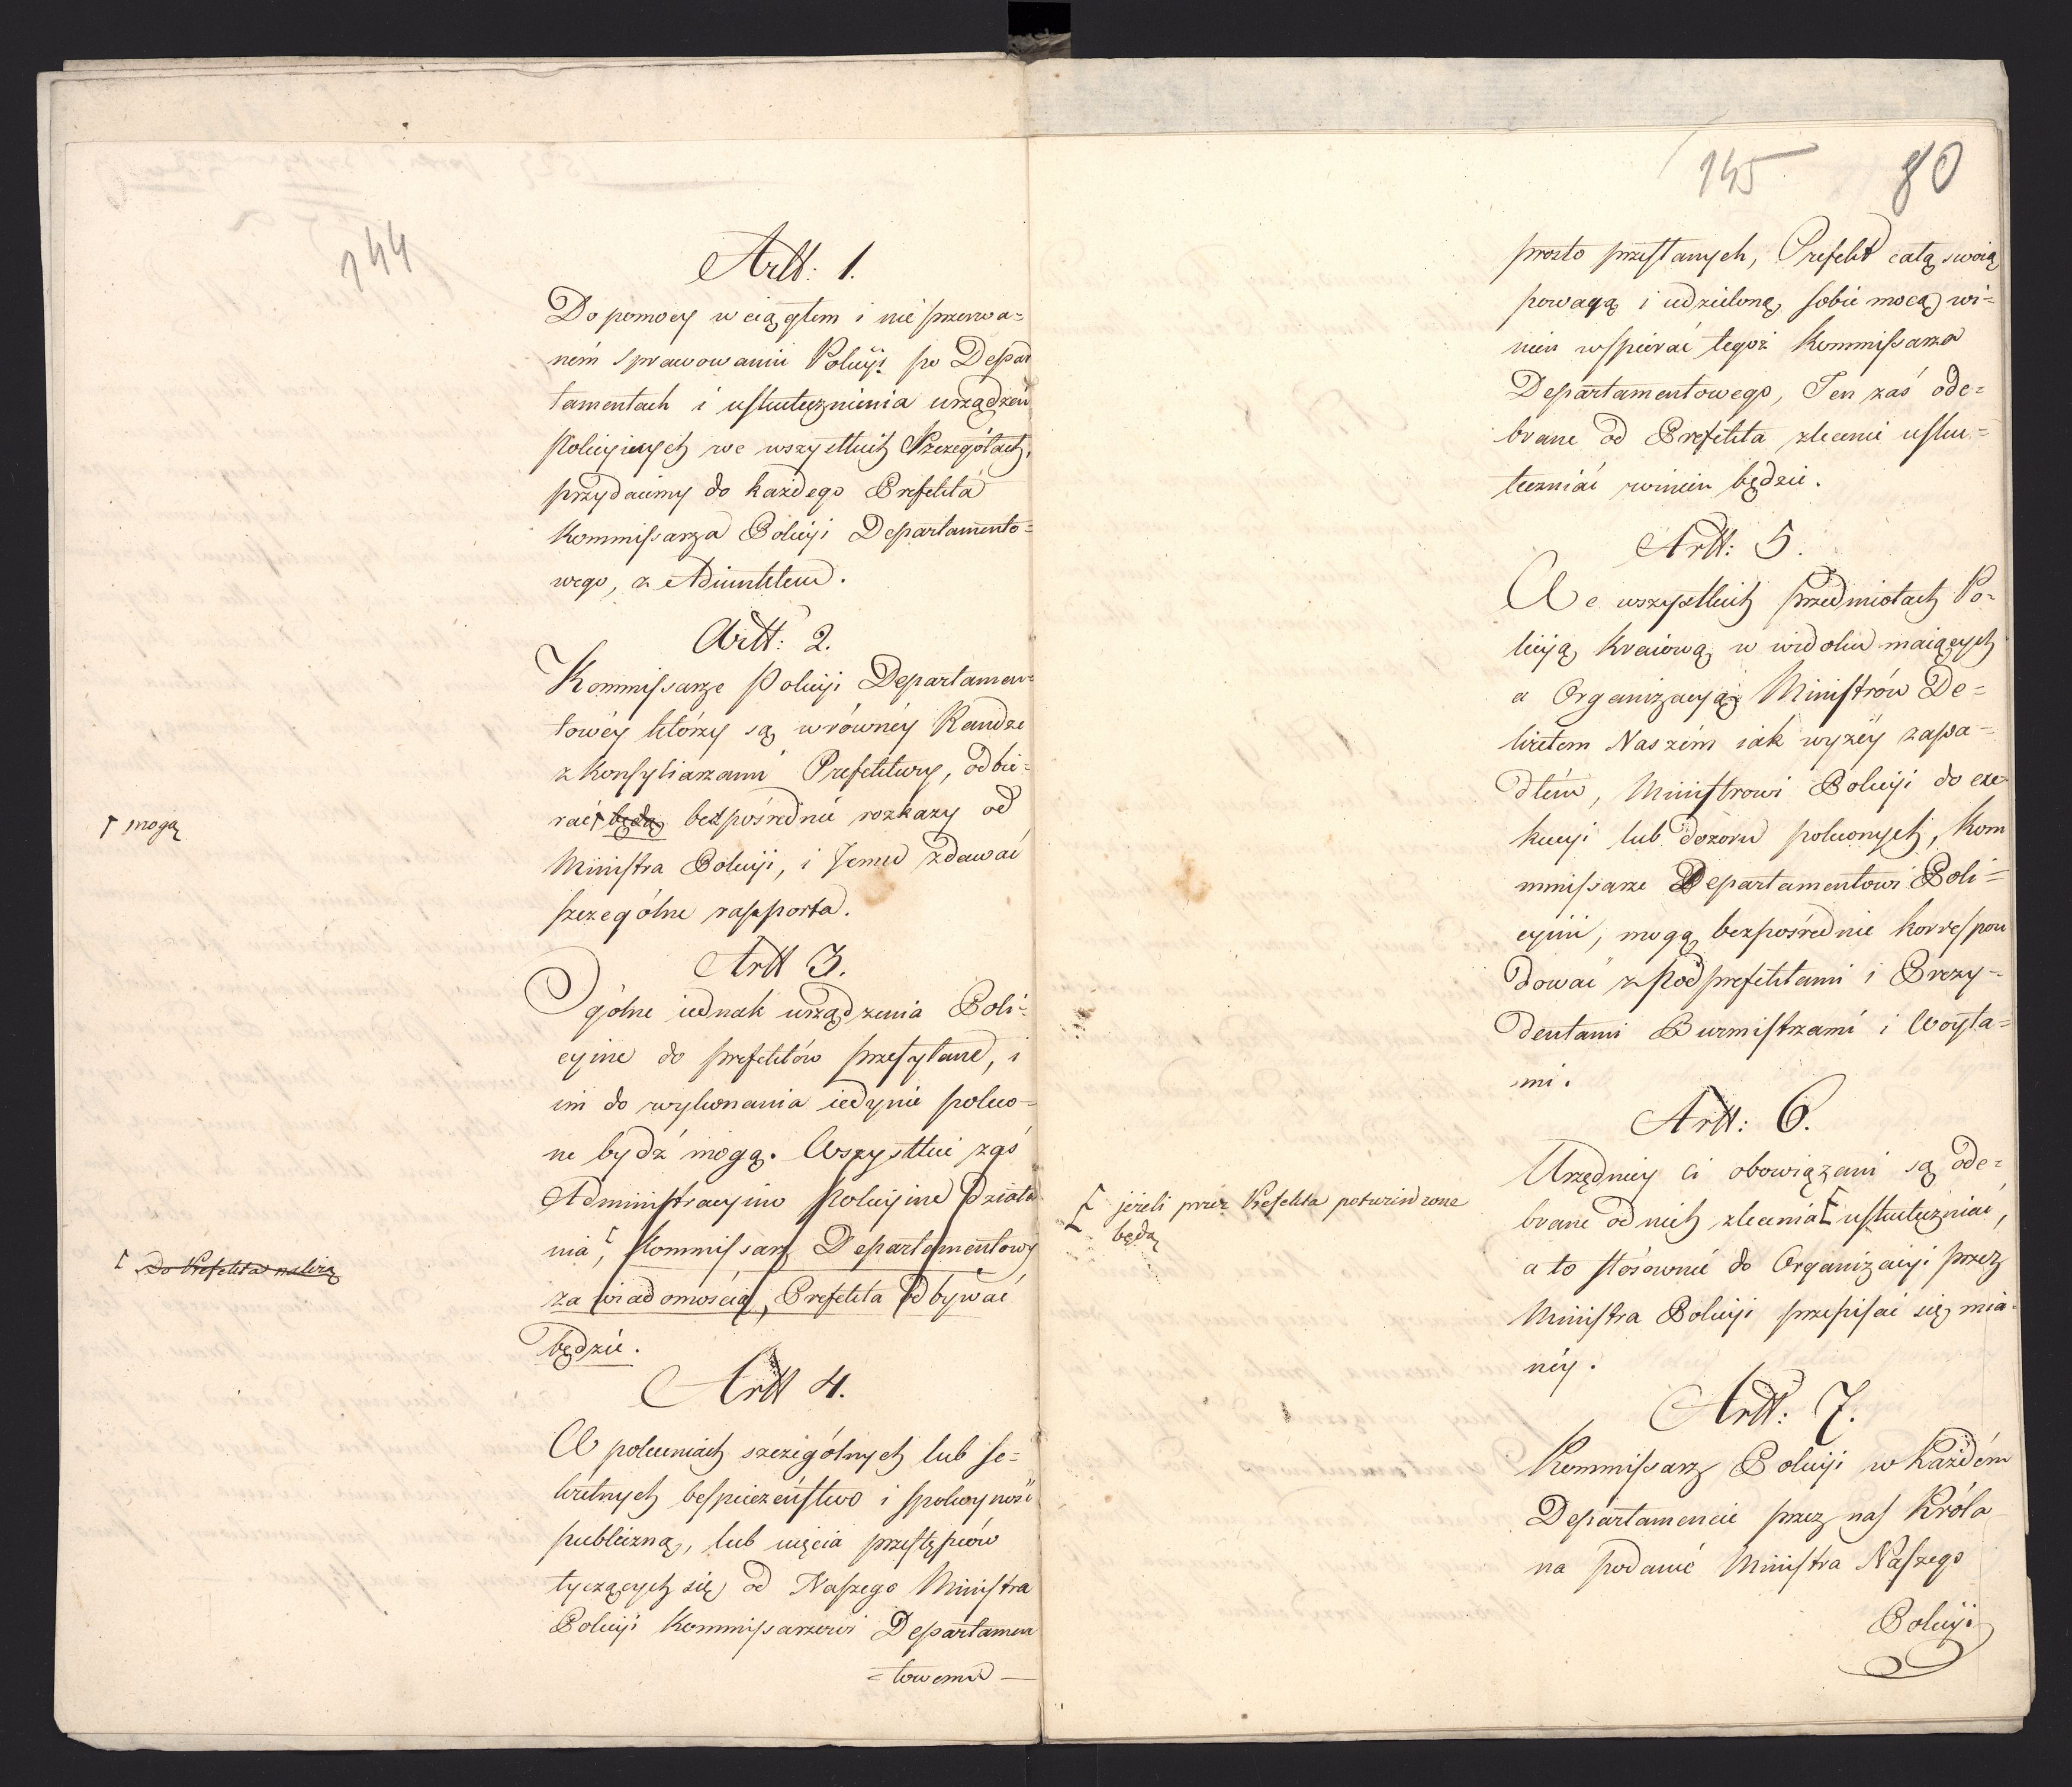 144
Artt: 1.
Do pomocy w ciągłem i nié przerwa=
ném sprawowaniu Policyi po Depar
tamentach i uskutecznienia urządzeń
Policyinych we wszystkich Szczegółach,
przydaiemy do każdego Prefekta
Kommissarza Policyi Departamento=
wego, z Adiunktem.
Artt: 2.
Kommissarze Policyi Departamen=
towéy którzy są w równéy Randze
z Konsyliarzami Prefektury, odbie=
rać ⌈ będą bezpośrednié rozkazy od
Ministra Policyi, i Jemu zdawać
szczególne rapporta.
⌈ mogą
Artt 3.
Ogólne iednak urządzenia Poli=
cyine do prefektów przesyłane, i
im do wykonania iedynie poleco=
ne bydź mogą. Wszystkie zaś
Administracyino Policyine działa
nia ⌈, Kommissarz Departamentowy
za wiadomością, Prefekta odbywać
będzie.
⌈ do Prefekta należą
Artt 4.
W poleceniach szczególnych lub se=
kretnych bespieczeństwo i spokoyność
publiczną, lub uięcia przestępców
tyczących się od Naszego Ministra
Policyi Kommissarzowi Departamen
=towemu
145 80
prosto przesłanych, Prefekt całą swoią
powagą i udzieloną sobie mocą wi=
nien wspierać tegoż Kommissarza
Departamentowego, Ten zaś ode=
brane od Prefekta zlecenie usku=
teczniać winien będzie.
Artt: 5.
We wszystkich przedmiotach Po=
licyą Kraiową w widoku maiących
a Organizacyą Ministrów De=
kretem Naszém iak wyżéy zapa=
dłém, Ministrowi Policyi do exe
kucyi lub dozoru poleconych, Kom
missarze Departamentowi Poli=
cyini, mogą bezpośrednie korrespon
dować z Podprefektami i Prezy=
dentami Burmistrzami i Woyta=
mi.
Artt: 6.
Urzędnicy ci obowiązani są ode=
brane od nich zlecenia ⌈ uskuteczniać,
a to stósownié do Organizacyi przez
Ministra Policyi przepisać się mia=
néy.
⌈ jeżeli przez Prefekta potwierdzone
będą
Artt: 7.
Kommissarz Policyi w Każdém
Departamencie przez nas Króla
na podanié Ministra Naszego
Policyi